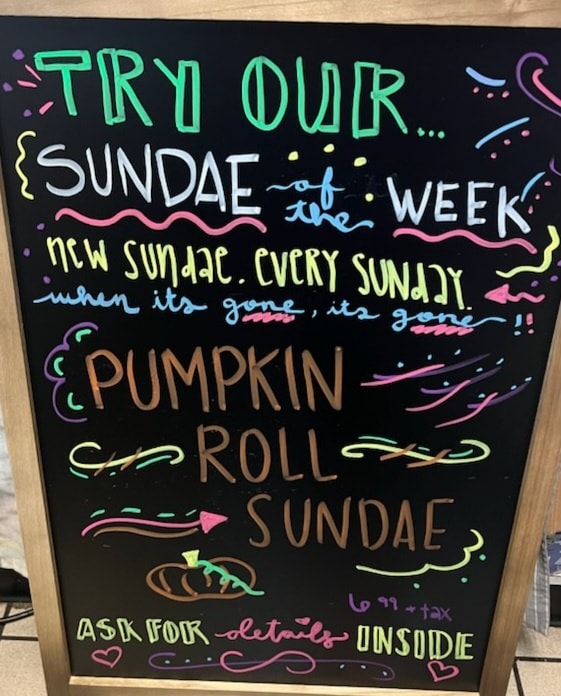 TRY OUR...
SUNDAE of the WEEK
new sundae. every sunday.
when its gone, its gone!!
PUMPKIN
ROLL
SUNDAE
6.99 + tax
ASK FOR details INSIDE